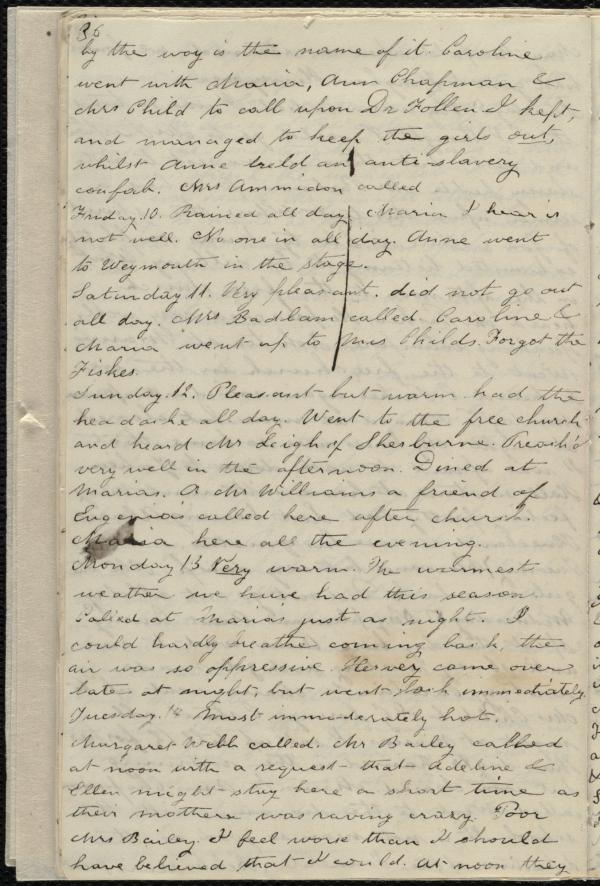 36
by the way is the name of it. Caroline
went with Maria, Ann Chapman &
Mrs Child to call upon Dr Follen I kept,
and managed to keep the girls out,
whilst Anne held an anti-slavery
confab. Mrs Ammidon called
Friday. 10. Rained all day. Maria I hear is
not well. No one in all day. Anne went
to Weymouth in the stage.
Saturday 11. Very pleasant. did not go out
all day. Mrs Badlam called. Caroline &
Maria went up to Mrs Childs. Forgot the
Fiskes.
Sunday. 12. Pleasant but warm had the
headache all day. Went to the free church
and heard Mr Leigh of Sherburne. Preach'd
very well in the afternoon. Dined at
Marias. A Mr Williams a friend of
Eugenia's called here after church.
Maria here all the evening.
Monday 13 Very warm. The warmest
weather we have had this season.
Called at Marias just as night. I
could hardly breathe coming back, the
air was so oppressive. Hervey came over
late at night, but went back immediately.
Tuesday. 14 Most immoderately hot.
Margaret Webb called. Mr Bailey called
at noon with a request that Adeline &
Ellen might stay here a short time as
their mother was raving crazy. Poor
Mrs Bailey. I feel worse than I should
have believed that I could. At noon they